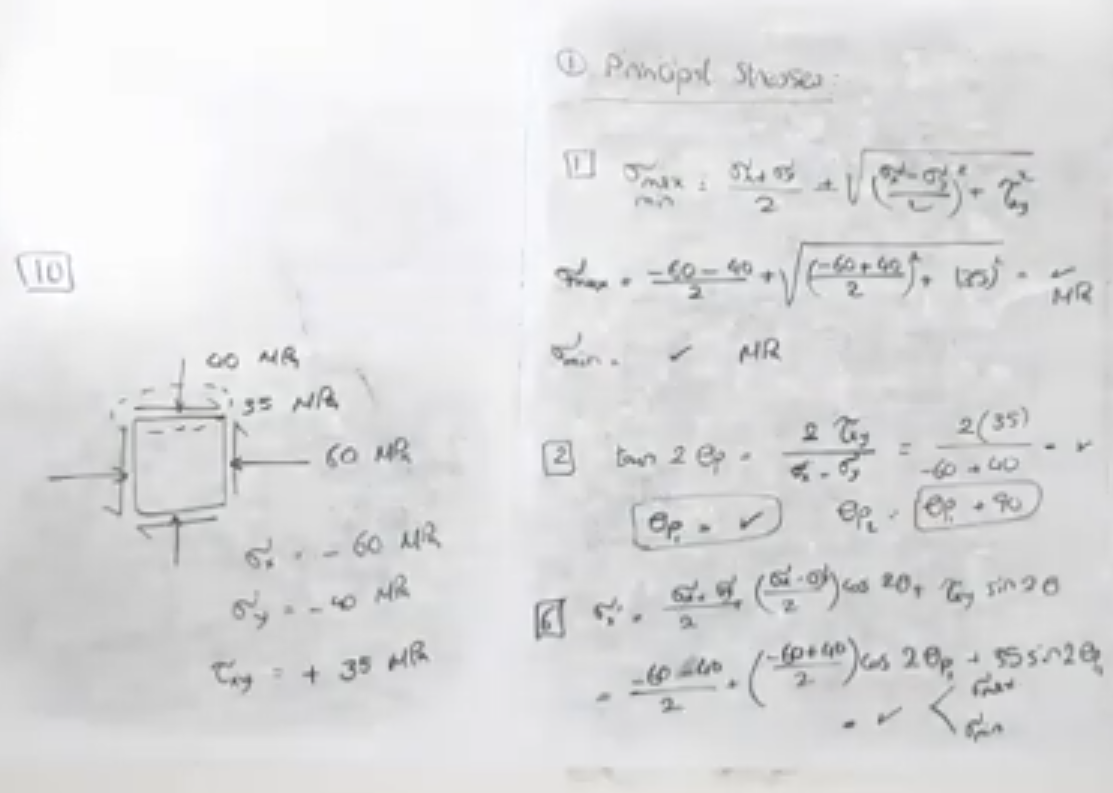 10
40 MPa
35 MPa
60 MPa
σx = - 60 MPa
σy = - 40 MPa
τxy = + 35 MPa
① Principal Stresses:
1 σmax min = (σx + σy)/2 ± √(((σx - σy)/2)² + τxy²)
σmax = (-60 - 40)/2 + √(((-60+40)/2)² + (35)²) = ✓ MPa
σmin = ✓ MPa
2 tan 2θp = 2 τxy/(σx - σy) = 2(35)/(-60 + 40) = ✓
θp₁ = ✓ θp₂ = θp₁ + 90
σx' = (σx + σy)/2 + ((σx - σy)/2) cos 2θ + τxy sin 2θ
= (-60 - 40)/2 + ((-60+40)/2) cos 2θp₁ + 35 sin 2θp₁
= ✓ < σmax
σmin